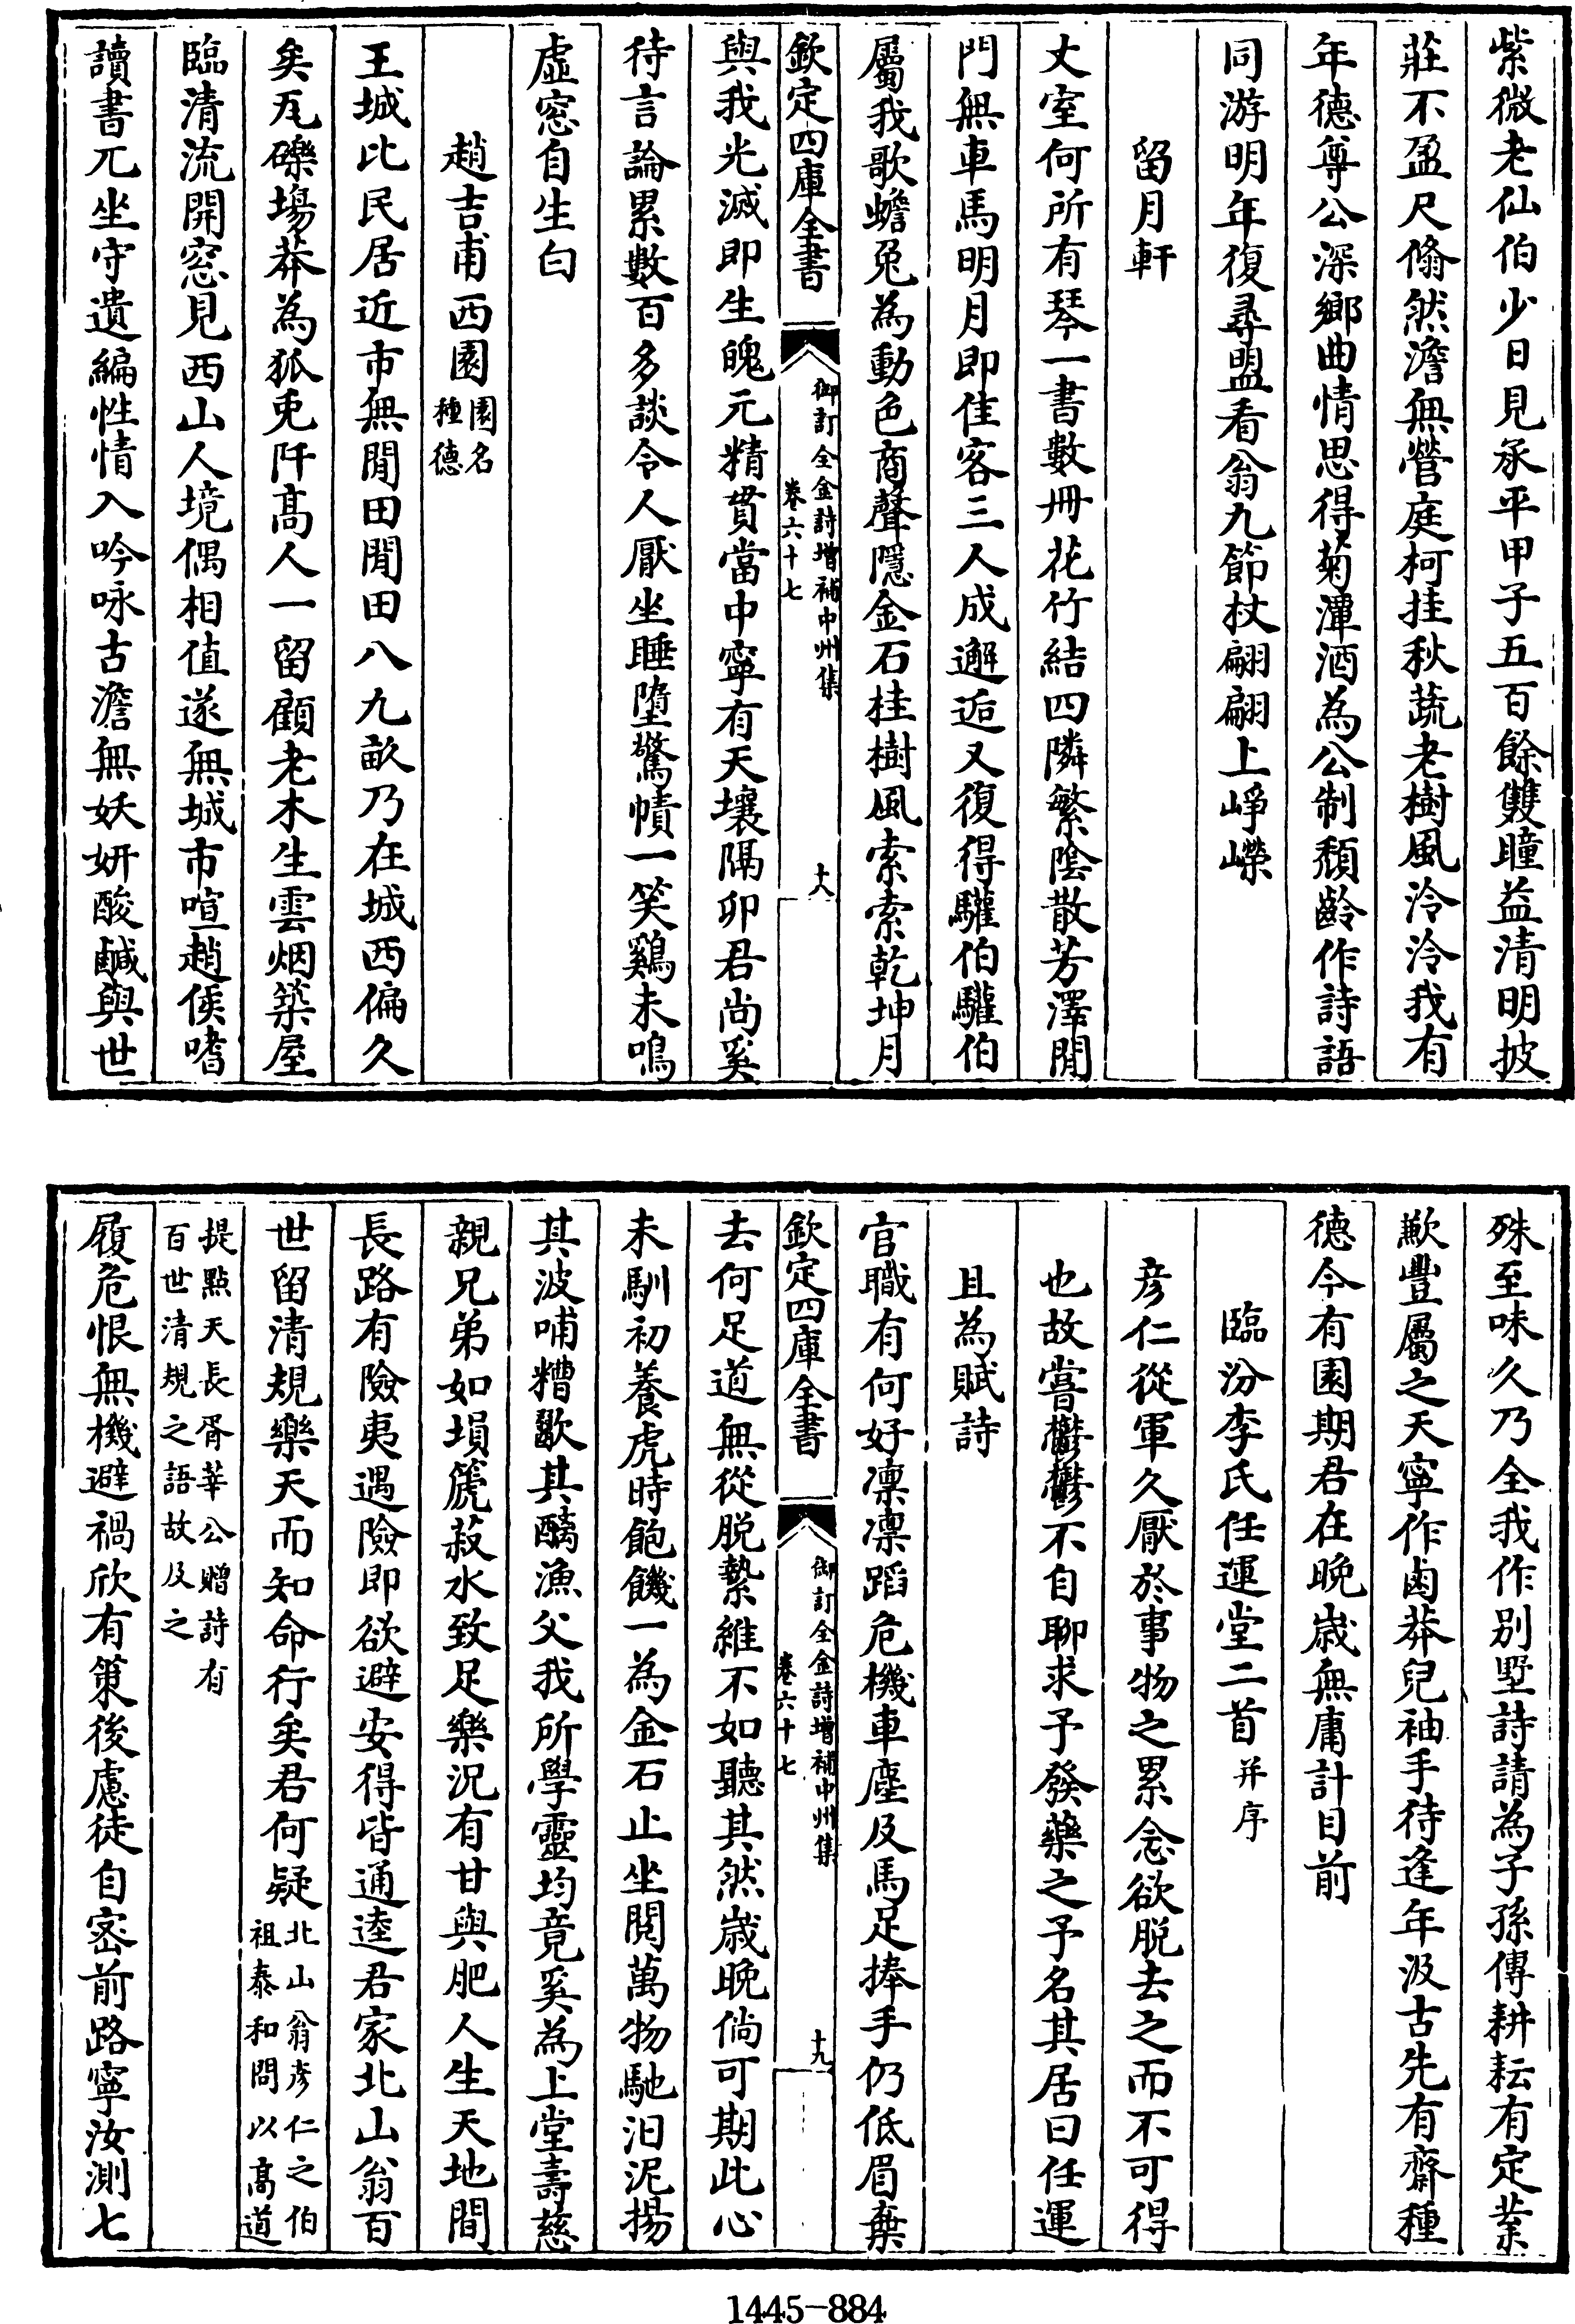 紫微老仙伯少日見承平甲子五百餘雙瞳益清明披
莊不盈尺翛然澹無營庭柯挂秋蔬老樹風泠泠我有
年德尊公深鄉曲情思得菊潭酒為公制頽齡作詩語
同游明年復尋盟看翁九節杖翩翩上崢嶸
留月軒
丈室何所有琴一書數冊花竹結四隣繁陰散芳澤閒
門無車馬明月即佳客三人成邂逅又復得驩伯驩伯
屬我歌蟾兔為動色商聲隱金石桂樹風索索乾坤月
欽定四庫全書
御訂全金詩增補中州集
卷六十七
十八
與我光滅即生魄元精貫當中寧有天壤隔卯君尚奚
待言論累數百多談令人厭坐睡墮驚幘一笑鷄未鳴
虛窓自生白
趙吉甫西園園名種德
王城比民居近市無閒田閒田八九畝乃在城西偏久
矣瓦礫場莽為狐兎阡髙人一留顧老木生雲烟築屋
臨清流開窓見西山人境偶相值遂無城市喧趙侯嗜
讀書兀坐守遺編性情入吟咏古澹無妖妍酸鹹與世
殊至味久乃全我作别墅詩請為子孫傳耕耘有定業
歉豐屬之天寧作鹵莽兒袖手待逢年汲古先有齋種
德今有園期君在晚嵗無庸計目前
臨汾李氏任運堂二首并序
彦仁從軍久厭於事物之累念欲脱去之而不可得
也故嘗鬱鬱不自聊求予發藥之予名其居曰任運
且為賦詩
官職有何好凛凛蹈危機車塵及馬足捧手仍低眉棄
欽定四庫全書
御訂全金詩增補中州集
卷六十七
十九
去何足道無從脱縶維不如聽其然嵗晚倘可期此心
未馴初養虎時飽饑一為金石止坐閱萬物馳汨泥揚
其波哺糟歠其醨漁父我所學靈均竟奚為上堂壽慈
親兄弟如塤篪菽水致足樂況有甘與肥人生天地間
長路有險夷遇險即欲避安得皆通逵君家北山翁百
世留清規樂天而知命行矣君何疑北山翁彦仁之伯祖泰和間以髙道
提點天長胥莘公贈詩有百世清規之語故及之
履危恨無機避禍欣有策後慮徒自宻前路寧汝測七
1445-884